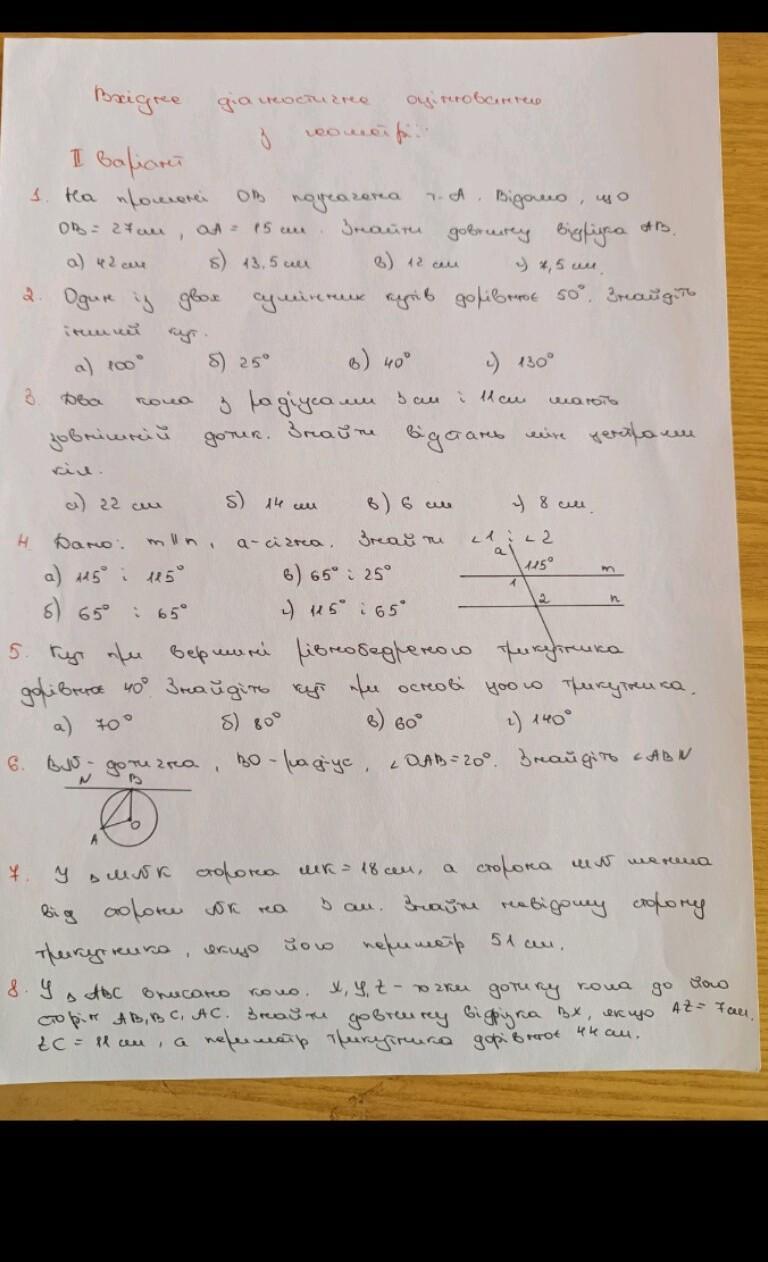 Вхідне діагностичне оцінювання
з геометрії
II варіант
1. На промені OB позначена т. A. Відомо, що
OB = 27 см, OA = 15 см. Знайти довжину відрізка AB.
а) 42 см б) 13,5 см в) 12 см г) 7,5 см.
2. Один із двох суміжних кутів дорівнює 50°. Знайдіть
інший кут.
а) 100° б) 25° в) 40° г) 130°
3. Два кола з радіусами 3 см і 11 см мають
зовнішній дотик. Знайти відстань між центрами
кіл.
а) 22 см б) 14 см в) 6 см г) 8 см.
4. Дано: m || n, a - січна. Знайти ∠1 і ∠2
а) 115° і 115° в) 65° і 25°
б) 65° і 65° г) 115° і 65°
a 115° m
1
2 n
5. Кут при вершині рівнобедреного трикутника
дорівнює 40°. Знайдіть кут при основі цього трикутника.
а) 70° б) 80° в) 60° г) 140°
6. BN - дотична, BO - радіус, ∠OAB = 20°. Знайдіть ∠ABN
N B
O
A
7. У △MNK сторона MK = 18 см, а сторона MN менша
від сторони NK на 3 см. Знайти невідому сторону
трикутника, якщо його периметр 51 см.
8. У △ABC вписано коло. X, Y, Z - точки дотику кола до його
сторін AB, BC, AC. Знайти довжину відрізка BX, якщо AZ = 7 см,
ZC = 11 см, а периметр трикутника дорівнює 44 см.